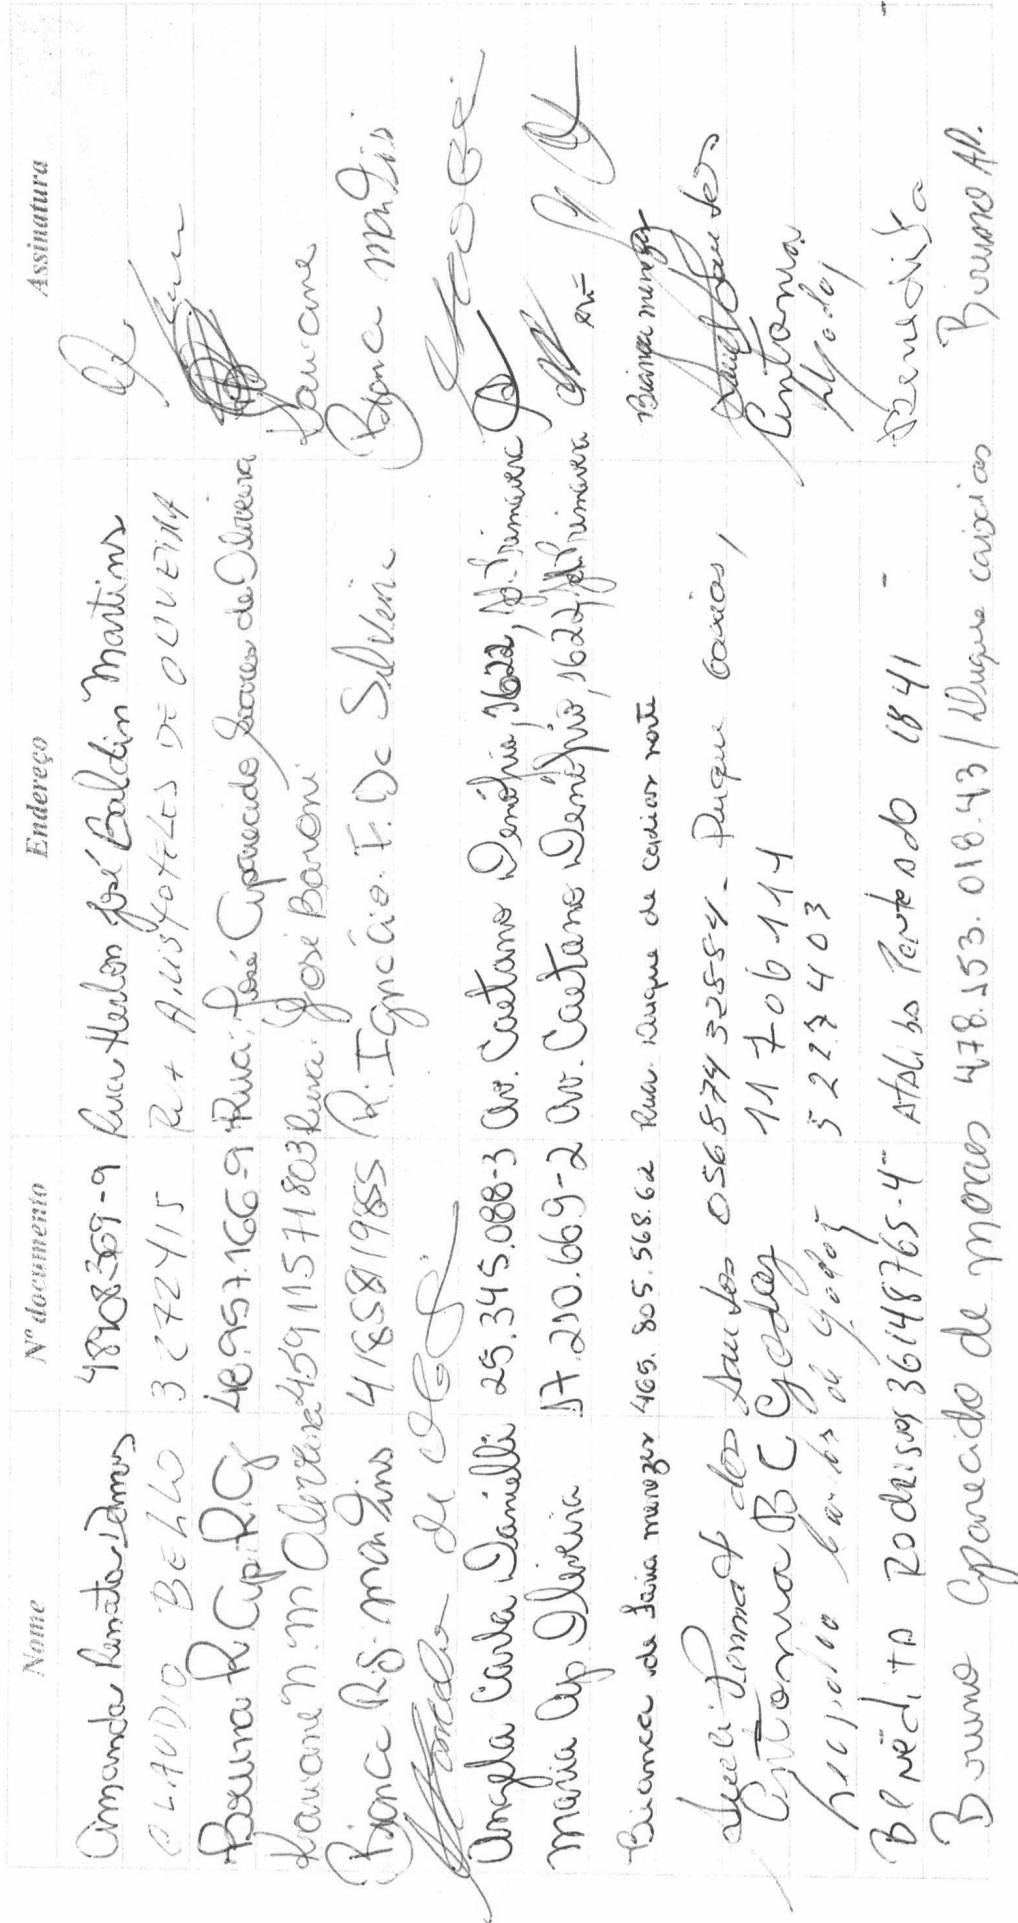 Nome Nº documento Endereço Assinatura
Amanda Renata Lemos 48908369-9 Rua Herlon José Baldin Martins
CLAUDIO BELLO 3 27241 5 RUA ARISTOTELES DE OLIVEIRA
Bruna R Ap. R.G 48.957.166-9 Rua: José Aparecido Soares de Oliveira
Kawane M. M Oliveira 459115571803 Rua: José Baroni Kawane
Bianca R. S. Martins 41858819855 R: Ignácio. F. De Silveira Bianca martins
Angela Carla Danielli 25.345.088-3 Av. Caetano Denófrio, 1622, Jd. Primavera
Maria Ap Oliveira 17.210.669-2 Av. Caetano Denófrio, 1622, Jd Primavera
Bianca de Faria menezes 465.805.568.62 Rua. Duque de caxias norte Bianca menezes
Sueli dos Santos 05687432584- Duque Caxias,
Antonia B C Godoy 11706111 Antonia Godoy
Carlos de Godoy 5227403
Benedita Rodrigues 36148765-4 Ataliba Penteado 1841 - Benedita
Bruno Aparecido de moraes 478.153.018-43 / Duque caixias Bruno AP.